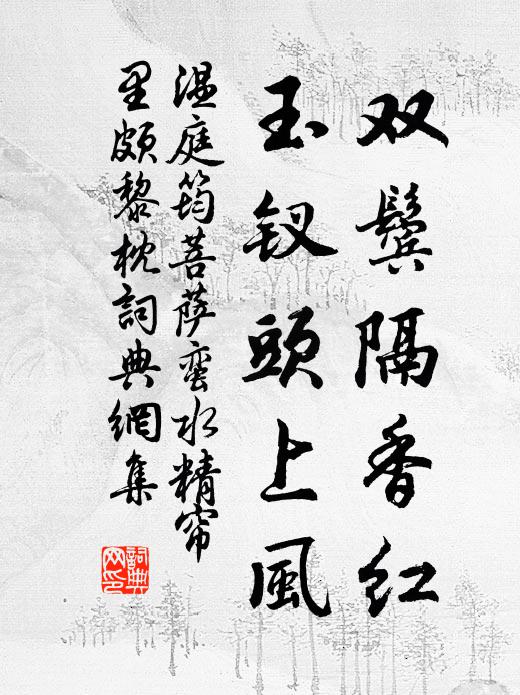 双鬓隔香红
玉钗頭上風
温庭筠菩萨蛮水精帘
里颇黎枕詞典網集
詞典网印